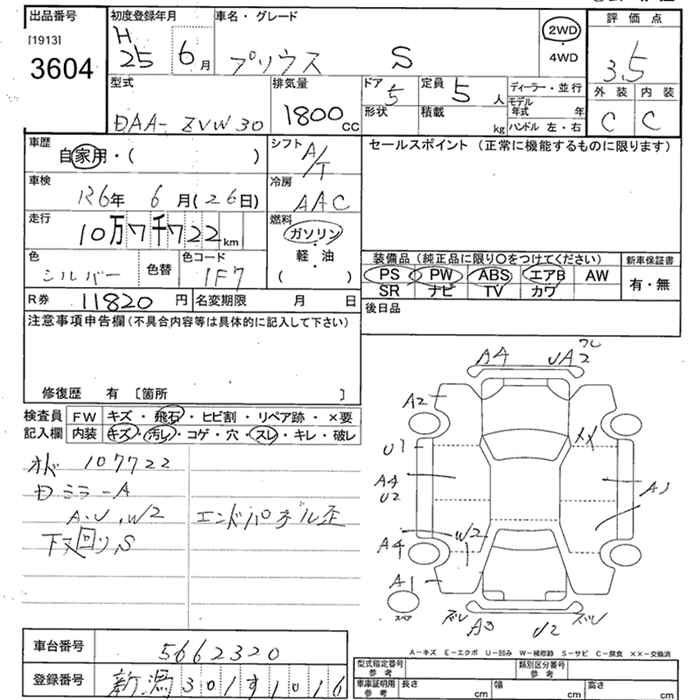 出品番号
[1913]
3604
初度登録年月
H
25 6月
車名・グレード
プリウス S
2WD
・
4WD
評価点
3.5
外装 内装
C C
型式
DAA-ZVW30
排気量
1800 CC
ドア 5
形状
定員 5 人
積載 kg
ディーラー・並行
モデル
年式 年
ハンドル 左・右
車歴
自家用・( )
シフト A/T
車検
R6年 6月(26日)
冷房
AAC
走行
10万7千722km
燃料
ガソリン
・
軽・油
( )
色
シルバー
色替
色コード
1F7
R券 11820円
名変期限 月 日
セールスポイント (正常に機能するものに限ります)
装備品(純正品に限り〇をつけてください)
PS PW ABS エアB AW
SR ナビ TV カワ
新車保証書
有・無
後日品
注意事項申告欄(不具合内容等は具体的に記入して下さい)
修復歴 有 〔箇所 〕
検査員
記入欄
FW キズ・飛石・ヒビ割・リペア跡・×要
内装 キズ・汚レ・コゲ・穴・スレ・キレ・破レ
オド 107722
Dミラ-A
A.U.W2
下又回り,S
エンドパネル歪
A4
UA2
A2
U1
A4
U2
W2
A4
A1
スペア
A3
U2
A3
A-キズ E-エクボ U-凹み W-補修跡 S-サビ C-腐食 ××-交換済
車台番号
5662320
登録番号
新潟301す1016
型式指定番号
参考
類別区分番号
参考
車庫証明用
参考
長さ cm
幅 cm
高さ cm